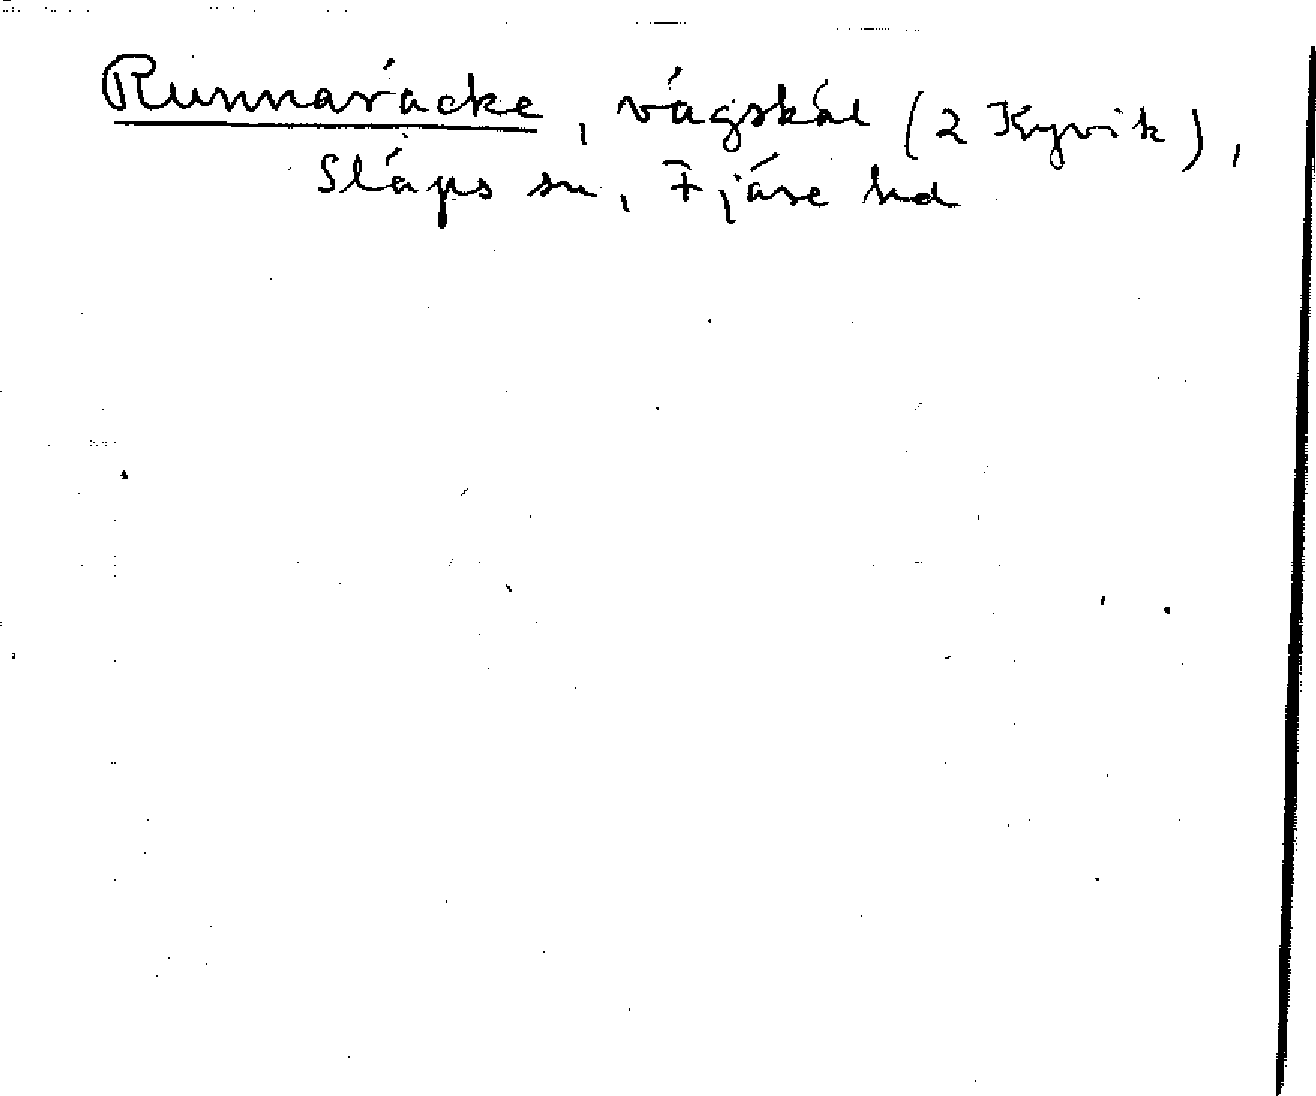 Runnaråcke, vägskäl (2 Kyvik),
Släps sn, Fjäre hd